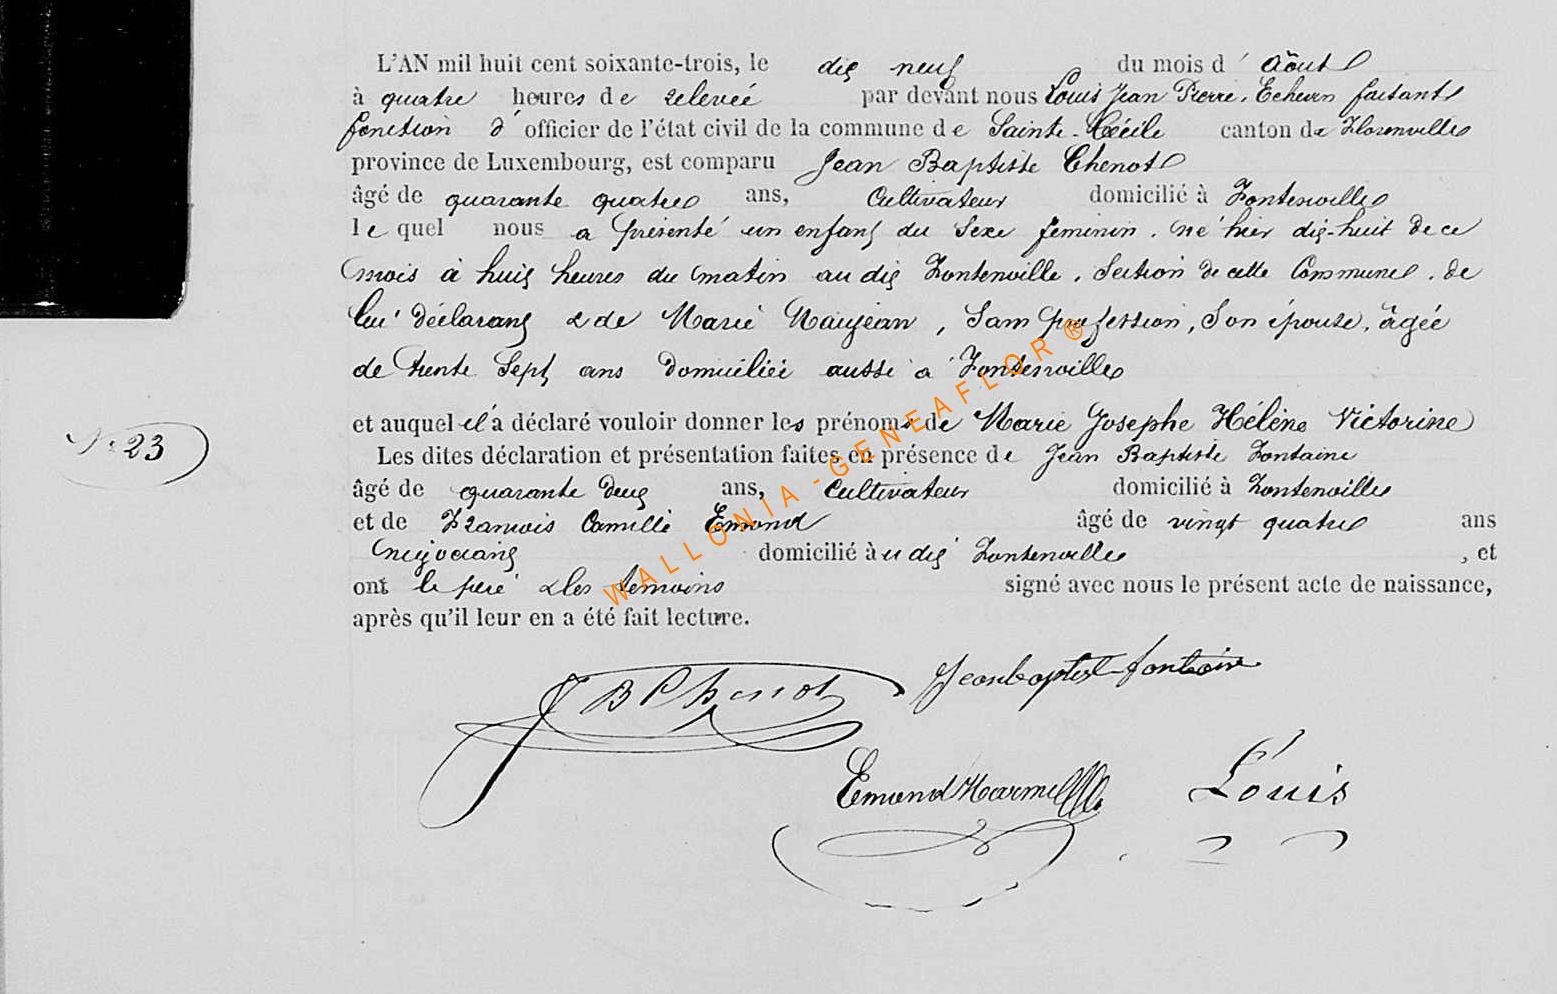 L'AN mil huit cent soixante-trois, le dix neuf du mois d'Août
à quatre heures de relevée par devant nous Louis Jean Pierre, Echevin faisant
fonction d'officier de l'état civil de la commune de Sainte-Cécile canton de Florenville
province de Luxembourg, est comparu Jean Baptiste Chenot
âgé de quarante quatre ans, Cultivateur domicilié à Fontenoille
lequel nous a présenté un enfant du Sexe féminin, né hier dix-huit de ce
mois à huit heures du matin au dit Fontenoille, Section de cette Commune, de
lui déclarant & de Marie Maujean, Sans profession, Son épouse, âgée
de trente Sept ans Domiciliée aussi à Fontenoille
et auquel il a déclaré vouloir donner les prénoms de Marie Josephe Hélène Victorine
N° 23
Les dites déclaration et présentation faites en présence de Jean Baptiste Fontaine
âgé de quarante Deux ans, Cultivateur domicilié à Fontenoille
et de François Camille Emond âgé de vingt quatre ans
négociant domicilié àu dit Fontenoille, et
ont le père & les temoins signé avec nous le présent acte de naissance,
après qu'il leur en a été fait lecture.
JB Chenot Jean baptist fontaine
Emond Louis
WALLONIA-GENEAFLOR®